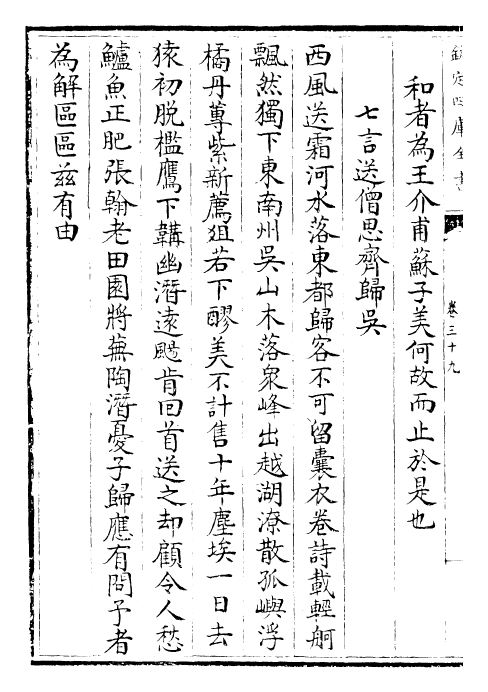 欽定四庫全書
卷三十九
和者為王介甫蘇子美何故而止於是也
七言送僧思齊歸吳
西風送霜河水落東都歸客不可留囊衣卷詩載輕舸
飄然獨下東南州吳山木落衆峰出越湖潦散孤嶼浮
橘丹蓴紫新薦俎若下醪美不計售十年塵埃一日去
猿初脫檻鷹下韝幽潛遠颺肯回首送之却顧令人愁
鱸魚正肥張翰老田園將蕪陶潛憂子歸應有問予者
為解區區兹有由